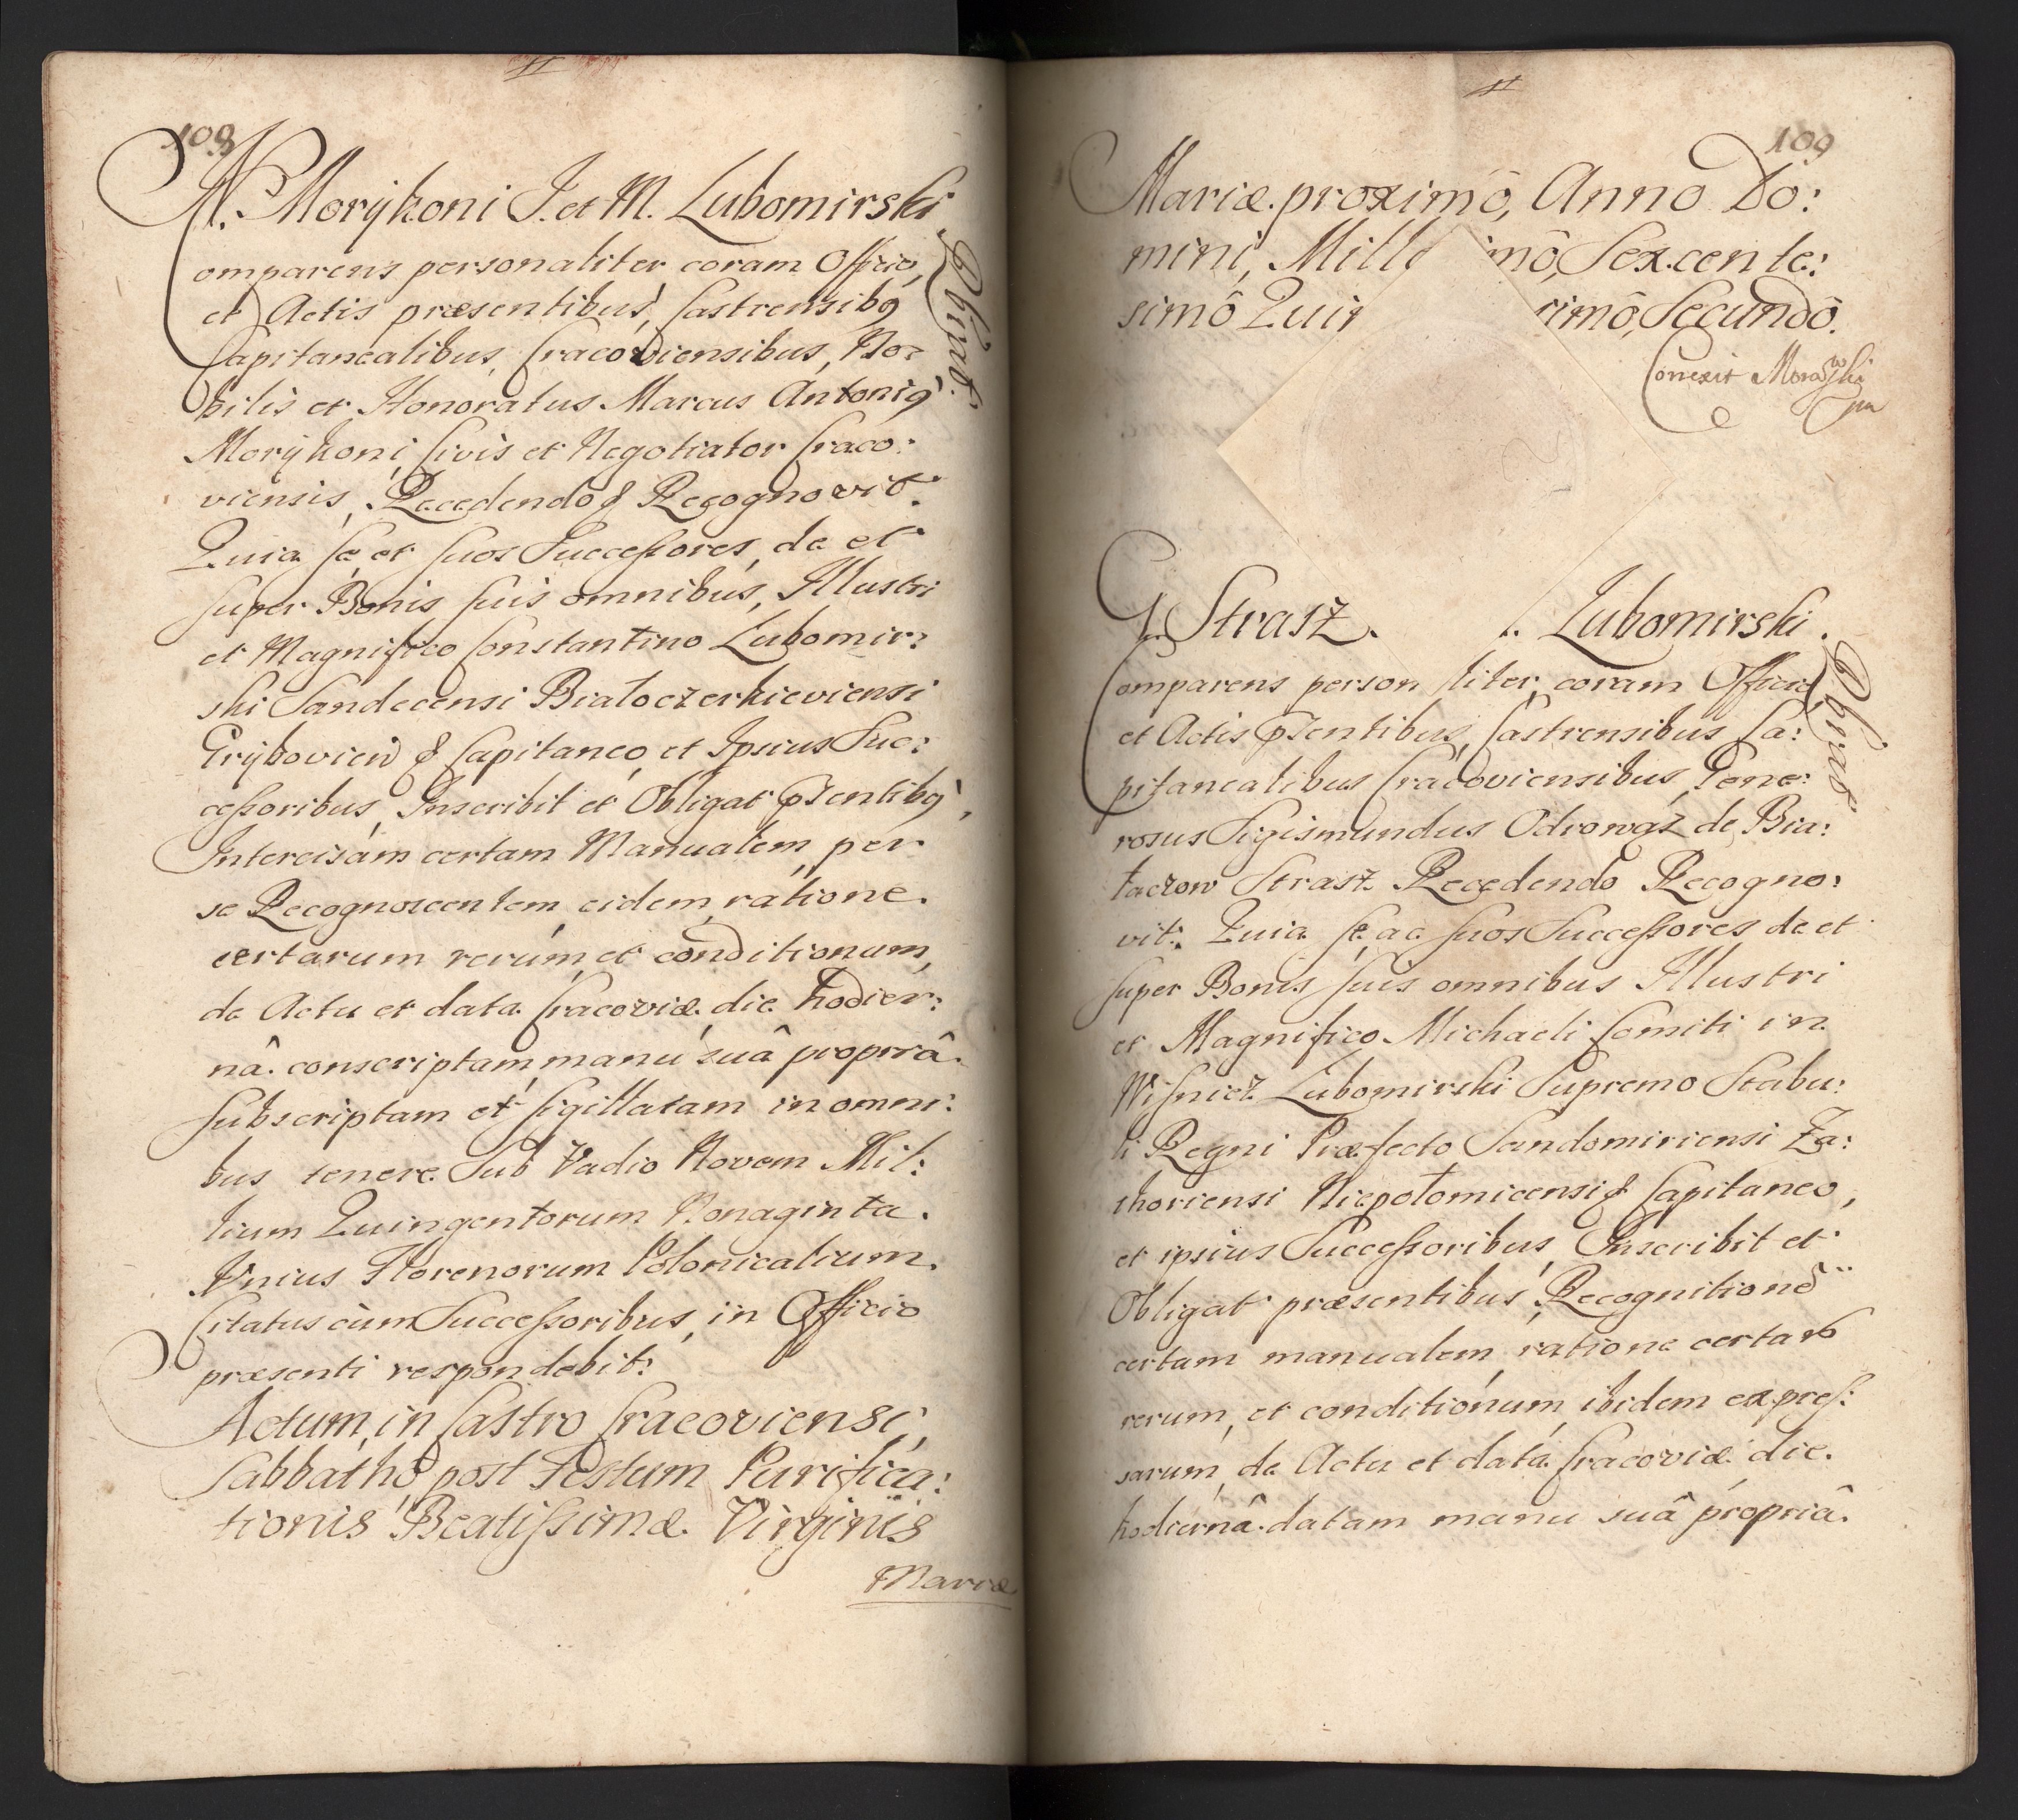 108
N. Morÿkoni J. et M. Lubomirski
Obligat.
omparens personaliter coram Officio,
et Actis præsentibus, Castrensibꝰ
Capitanealibus, Cracoviensibus, No:
bilis et Honoratus Marcus Antoniꝰ
Morÿkoni, Civis et Negotiator Craco:
viensis, Recedendo & Recognovit.
Quia se, et suos Successores, de et
super Bonis suis omnibus, Illustri
et Magnifico Constantino Lubomir:
ski Sandecensi Białoczerkieviensi
Grÿbovien & Capitaneo, et Ipsius Suc:
cessoribus, Inscribit et Obligat pñtibꝰ,
Intercisam certam Manualem, per
se Recognoscentem, eidem, ratione
certarum rerum, et conditionum,
de Actu et data Cracoviæ die hodier:
nâ conscriptam, manu suâ propriâ
subscriptam et sigillatam in omni:
bus tenere. Sub Vadio Novem Mil:
lium Quingentorum Nonaginta
Unius Florenorum Polonicalium.
Citatus cum Successoribus, in Officio
præsenti respondebit.
Actum, in Castro Cracoviensi,
Sabbathô, post Festum Purifica:
tionis Beatissimæ Virginis
Mariæ
109
Mariæ proximô, Anno Do:
mini, Mill imô, Sexcente:
simô Quin rimô, Secundô.
Correxit Morawski
mp
G. Strasz. Lubomirski.
Obligat.
Comparens person liter, coram Officio,
et Actis pñtibus, Castrensibus Ca:
pitanealibus Cracoviensibus, Gene:
rosus Sigismundus Odrowąz de Bia:
łaczow Strasz Recedendo Recogno:
vit. Quia se, ac suos Successores de et
super Bonis suis omnibus Illustri
et Magnifico Michaeli Comiti in
Wisnicz Lubomirski Supremo Stabu:
li Regni Præfecto Sandomiriensi Za:
thoriensi Niepołomicensi & Capitaneo,
et ipsius Successoribus, Inscribit et
Obligat præsentibus, Recognitionē
certam manualem, ratione certarꝝ
rerum, et conditionum, ibidem expres:
sarum, de Actu et data Cracoviæ die
hodiernâ datam manu suâ propriâ